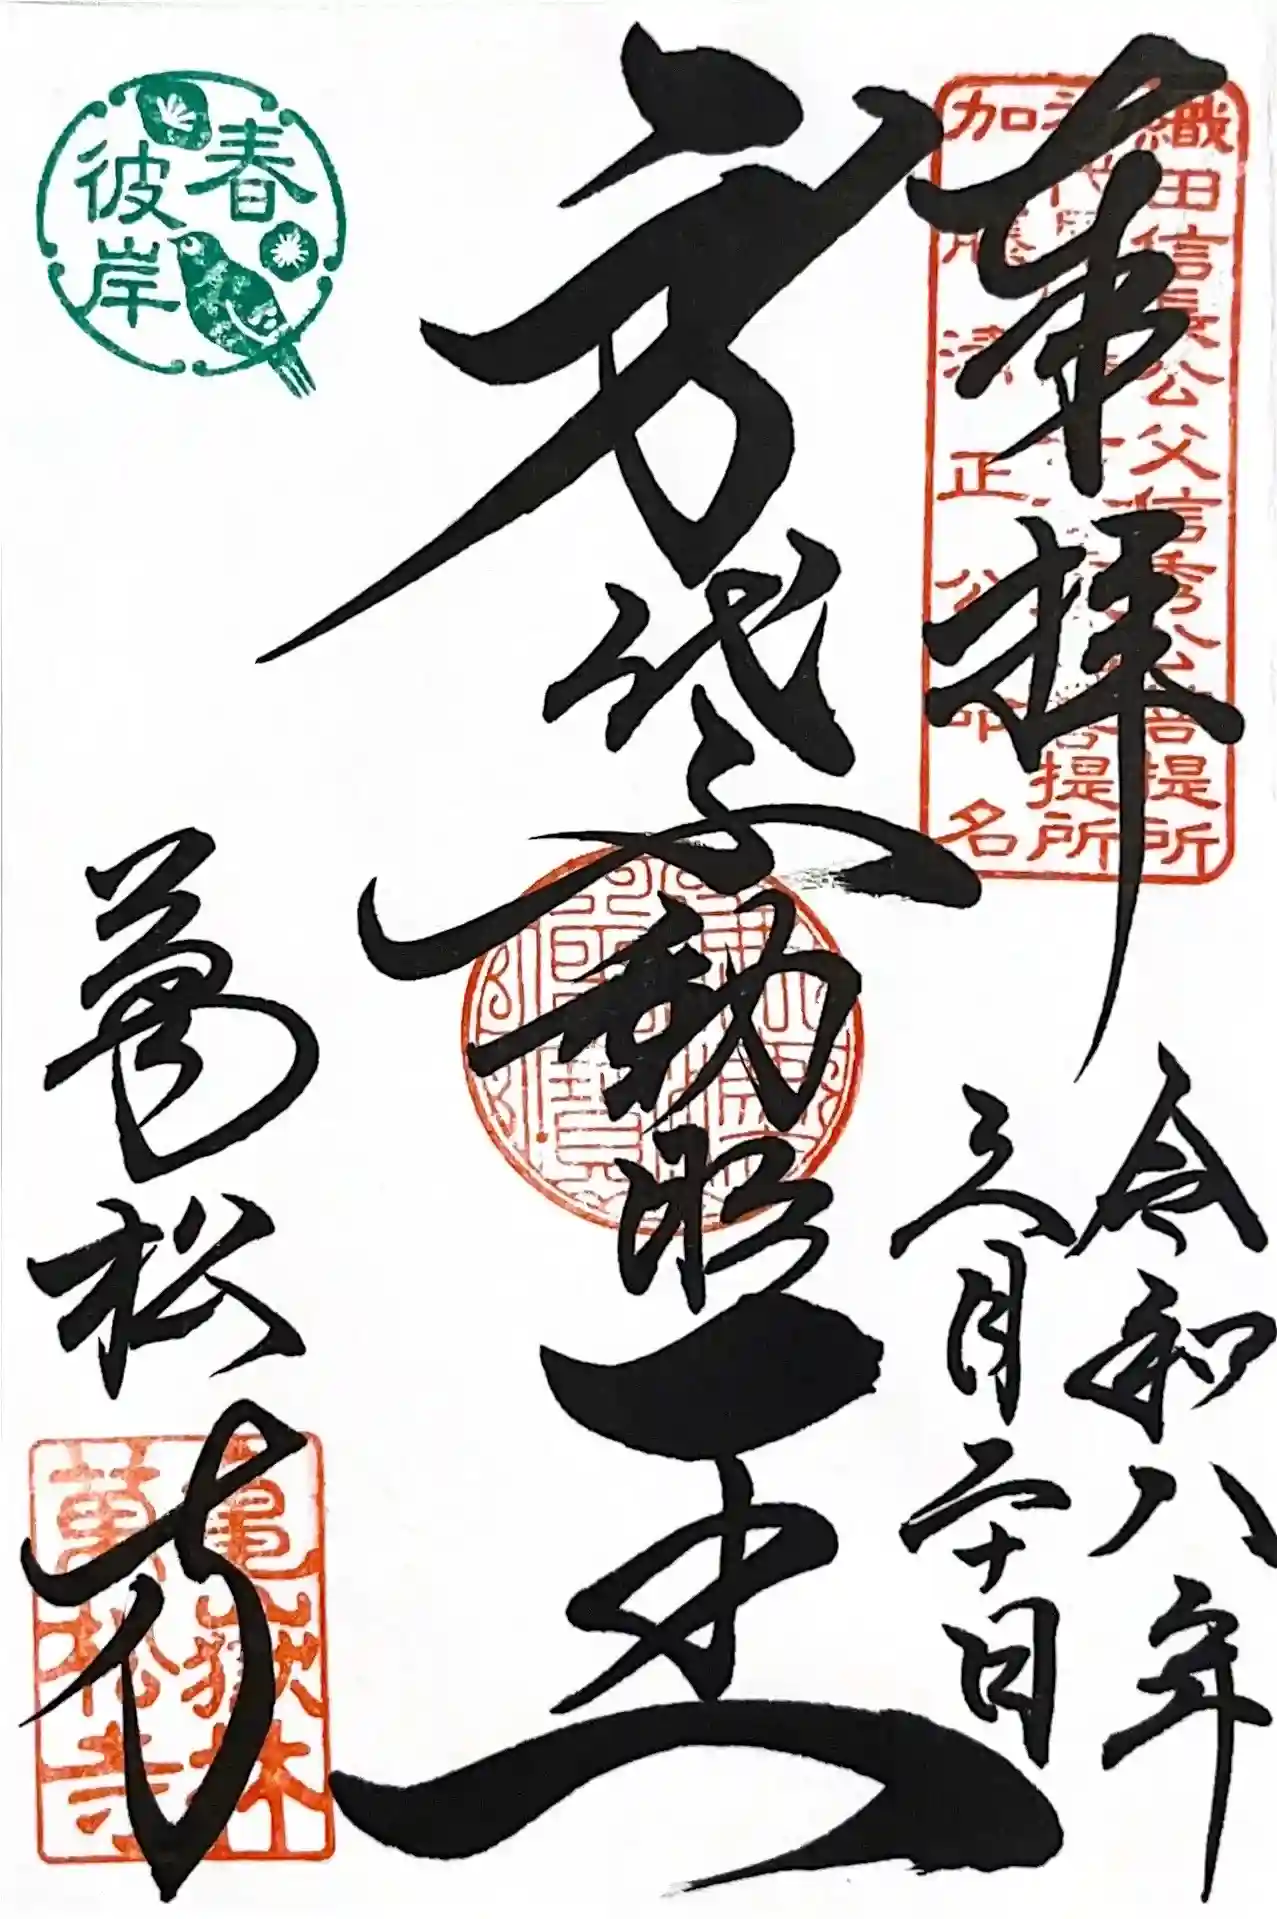 奉拝
織田信長公父信秀公菩提所
菩提所
加藤清正公命名
令和八年
三月二十日
身代不動明王
春
彼岸
萬松寺
亀嶽林
萬松寺